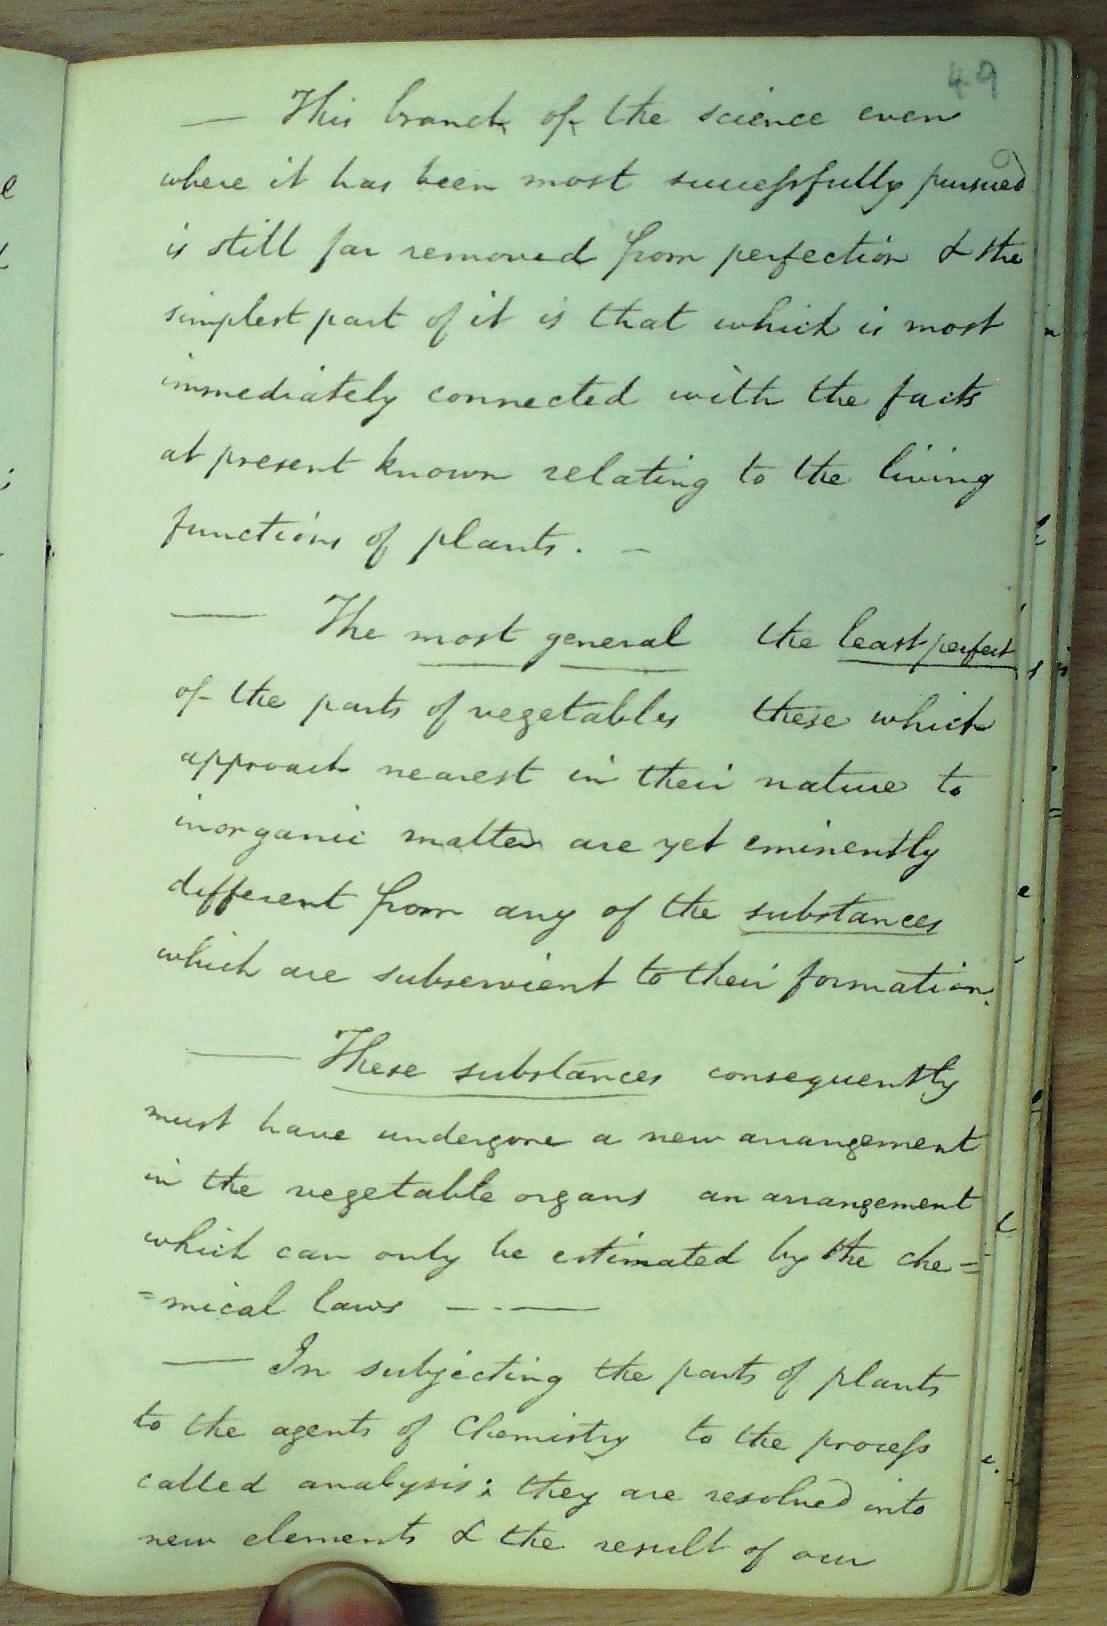 49
— This branch of the science even
where it has been most successfully pursued
is still far removed from perfection & the
simplest part of it is that which is most
immediately connected with the facts
at present known relating to the living
functions of plants. —
— The most general the least perfect
of the parts of vegetables these which
approach nearest in their nature to
inorganic matter are yet eminently
different from any of the substances
which are subservient to their formation.
— These substances consequently
must have undergone a new arrangement
in the vegetable organs an arrangement
which can only be estimated by the che=
=mical laws — . —
— In subjecting the parts of plants
to the agents of Chemistry to the process
called analysis; they are resolved into
new elements & the result of our